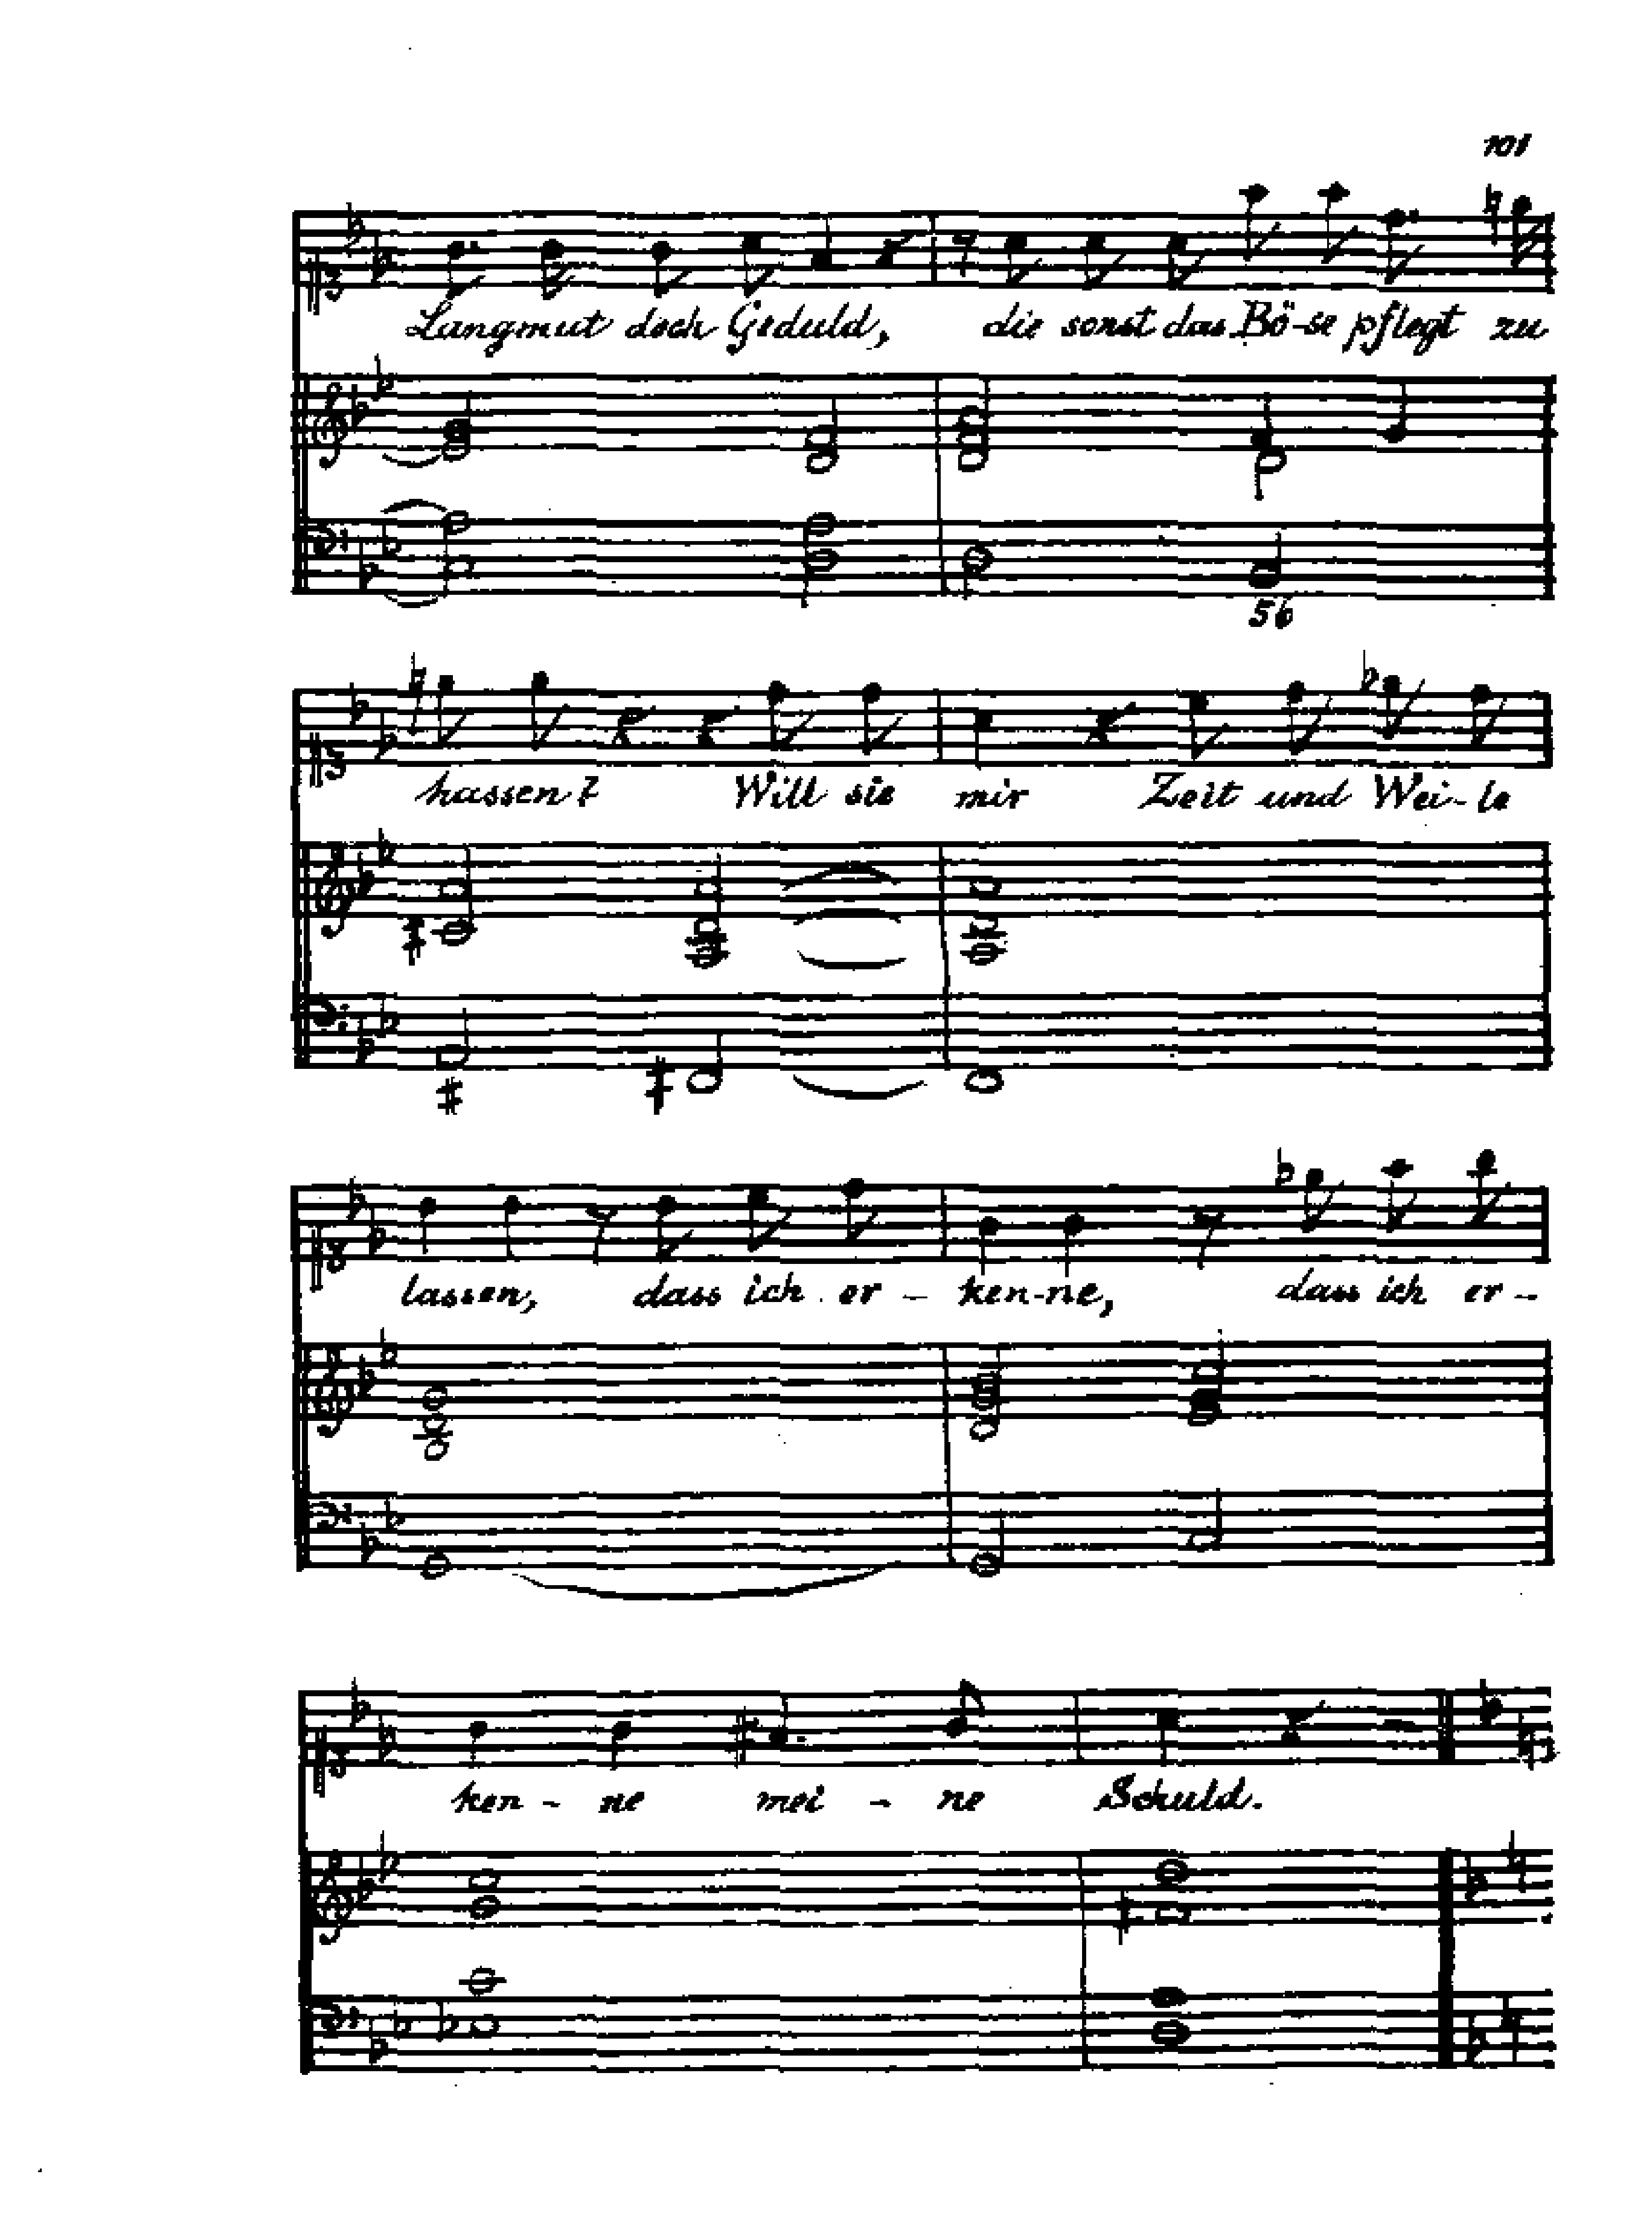 101
Langmut doch Geduld, die sonst das Bö-se pflegt zu
56
hassen? Will sie mir Zeit und Wei-le
lassen, dass ich er- ken-ne, dass ich er-
ken- ne mei- ne Schuld.